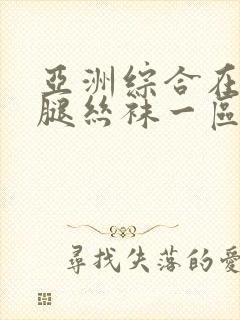 亞洲綜合在
腿絲袜一區
尋找失落的愛